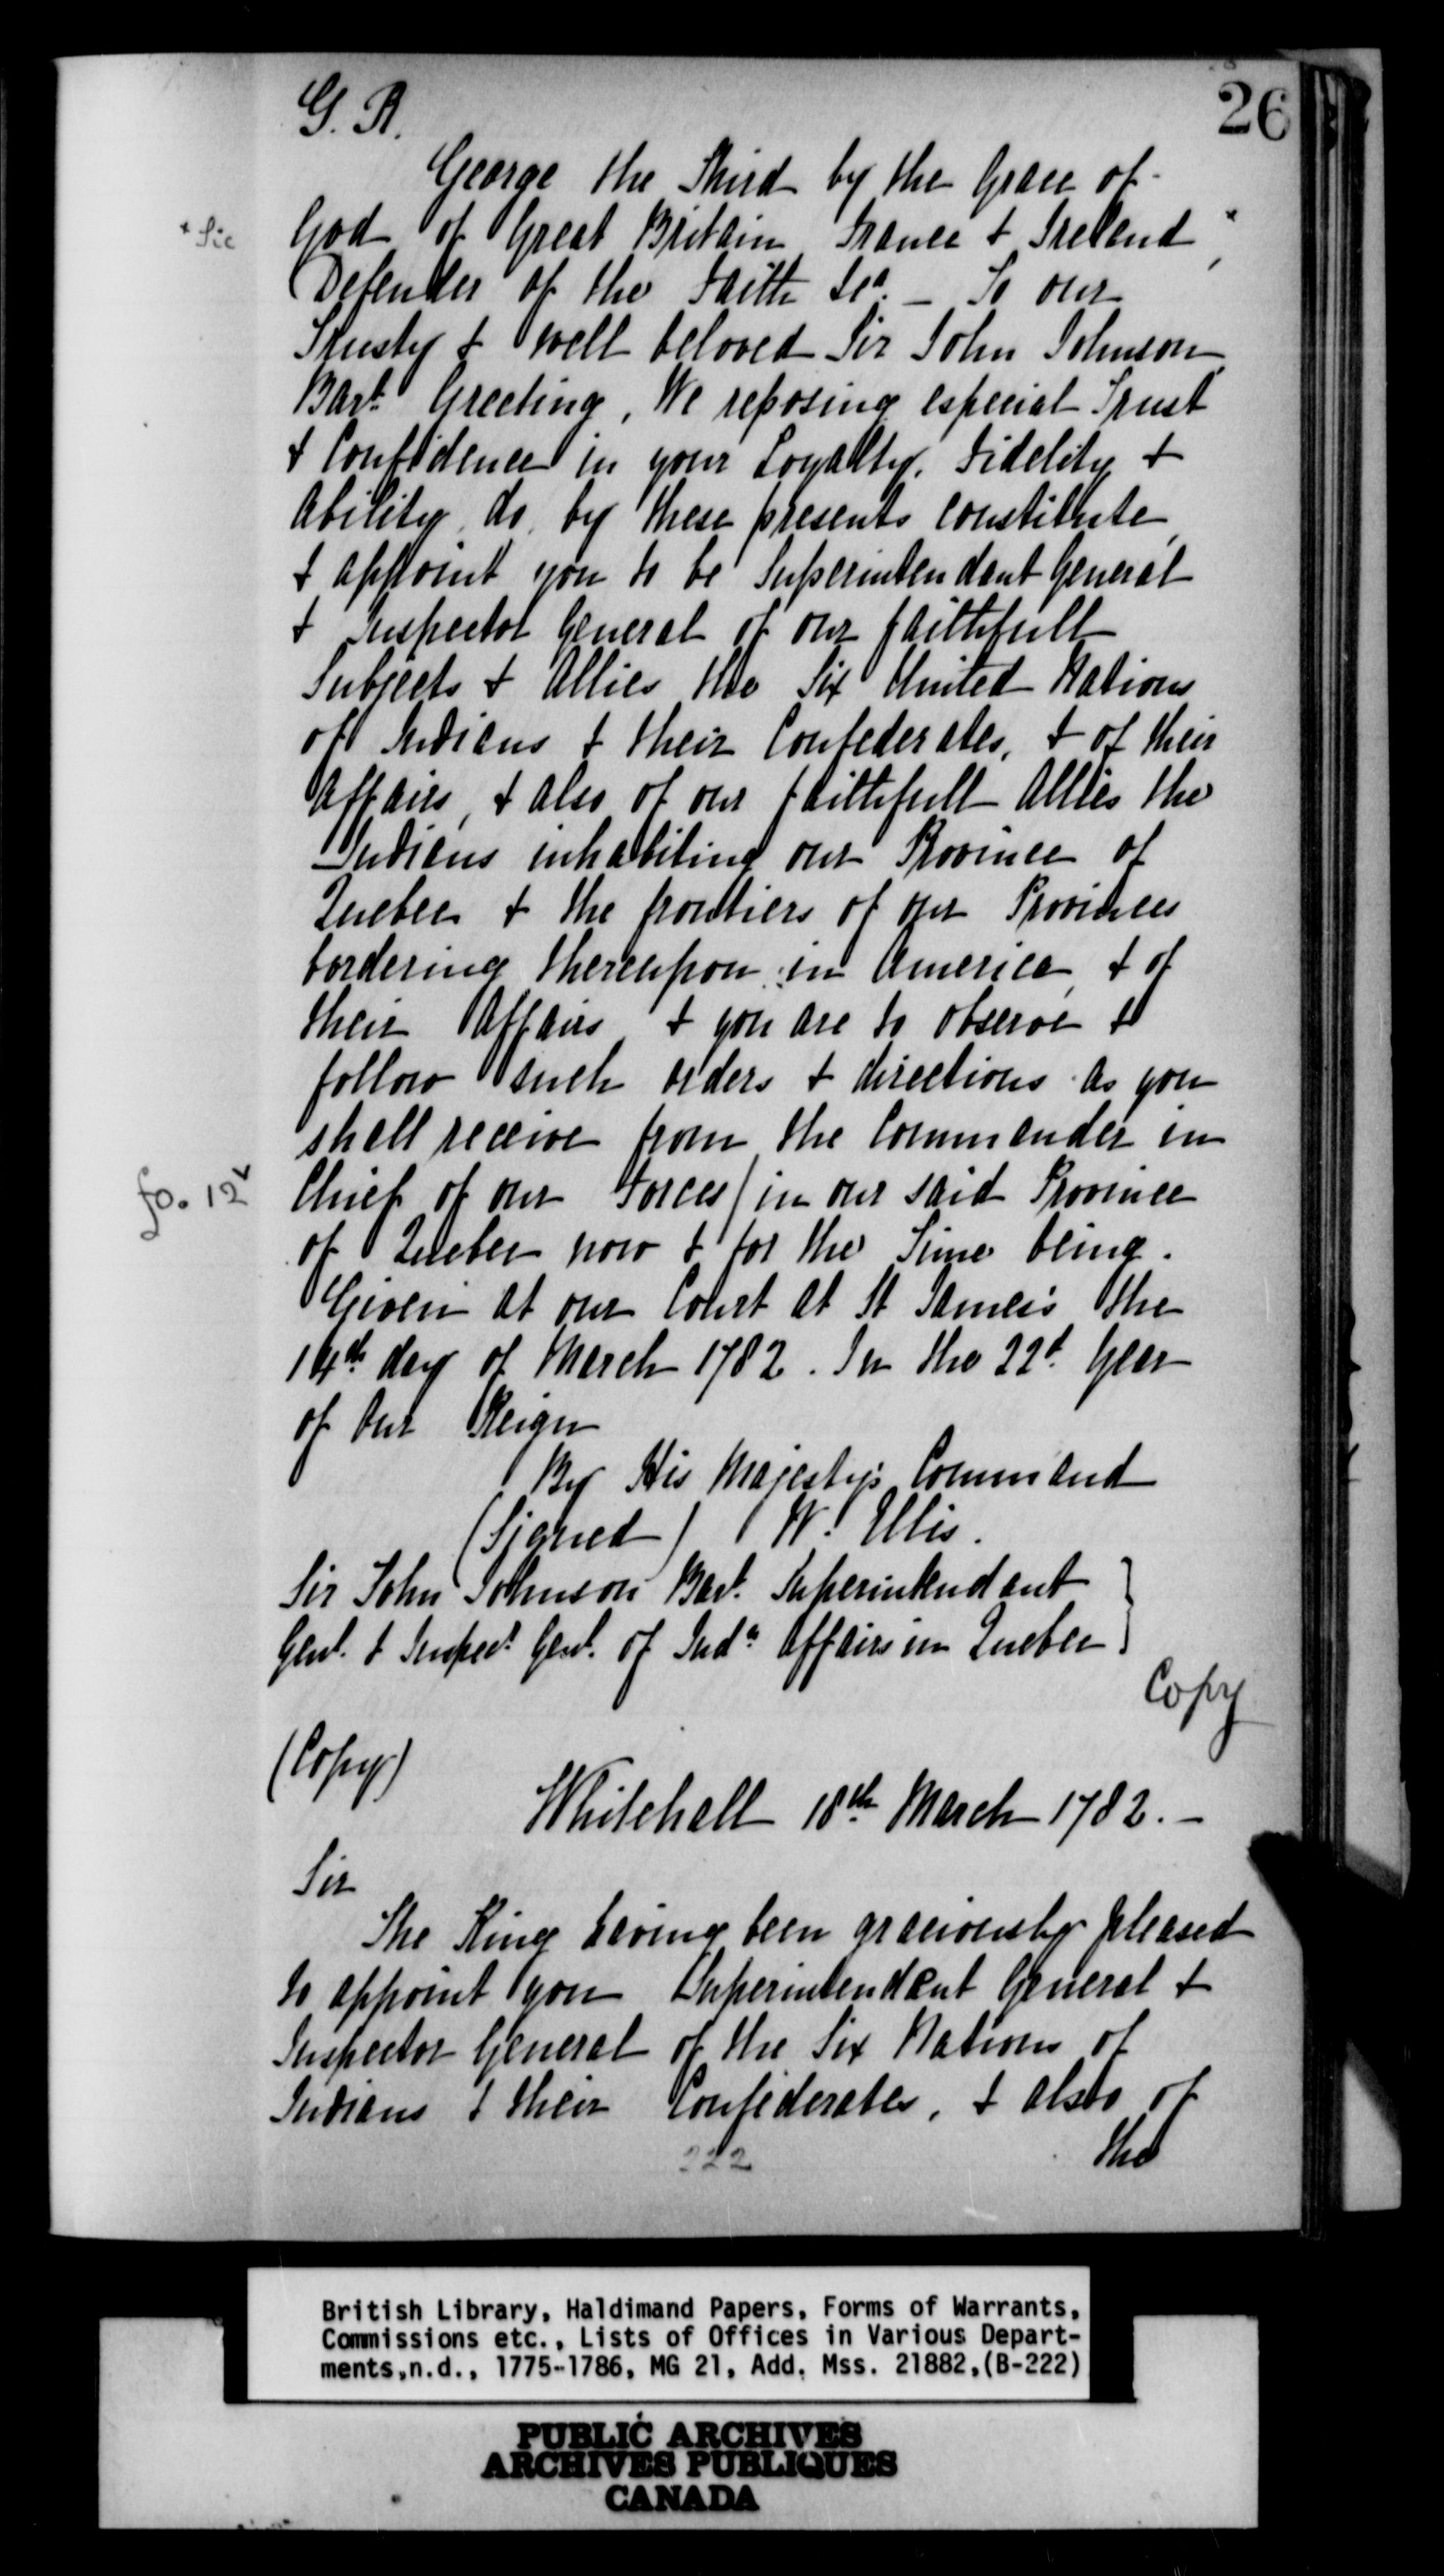 26
G. R.
George the Third by the Grace of
* Sic
God of Great Britain France & Ireland, *
Defender of the Faith &ca. — To our
Trusty & well beloved Sir John Johnson
Bart. Greeting. We reposing especial Trust
& Confidence in your Loyalty, Fidelity &
ability do by these presents constitute
& appoint you to be Superintendant General
& Inspector General of our faithfull
Subjects & Allies the Six United Nations
of Indians & their Confederates, & of their
Affairs, & also of our faithfull Allies the
Indians inhabiting our Province of
Quebec & the frontiers of our Provinces
bordering thereupon in America, & of
their Affairs & you are to observe &
follow such orders & directions as you
shall receive from the Commander in
fo. 12v
Chief of our Forces / in our said Province
of Quebec now & for the Time being.
Given at our Court at St James's the
14th day of March 1782. In the 22d. Year
of Our Reign
By His Majesty's Command
(Signed) W. Ellis.
Sir John Johnson Bart. Superintendant
Genl. & Inspecr. Genl. of Indn. Affairs in Quebec }
Copy
(Copy)
Whitehall 18th March 1782. —
Sir
The King having been graciously pleased
to appoint you Superintendant General &
Inspector General of the Six Nations of
Indians & their Confederates, & also of
the
222
British Library, Haldimand Papers, Forms of Warrants,
Commissions etc., Lists of Offices in Various Depart-
ments,n.d., 1775-1786, MG 21, Add. Mss. 21882,(B-222)
PUBLIC ARCHIVES
ARCHIVES PUBLIQUES
CANADA